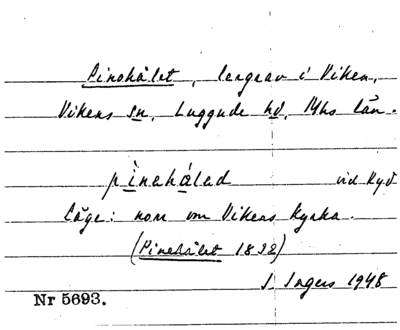 Pinehålet, lergrav i Viken,
Vikens sn, Luggude hd, Mhs län.
pìnehålad vid Kyd
läge: norr om Vikens kyrka.
(Pinehålet 1832)
I. Ingers 1948
Nr 5693.